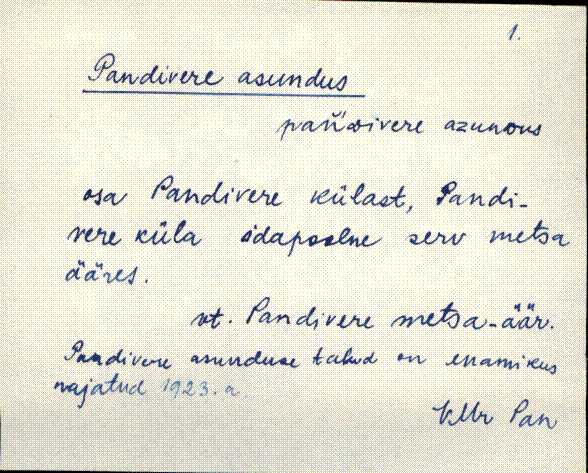 1.
Pandivere asundus
pań́divere azundus
osa Pandivere külast, Pandi-
vere küla idapoolne serv metsa
ääres.
vt. Pandivere metsa-äär.
Pandivere asunduse talud on enamikus
rajatud 1923. a.
VMr Pan